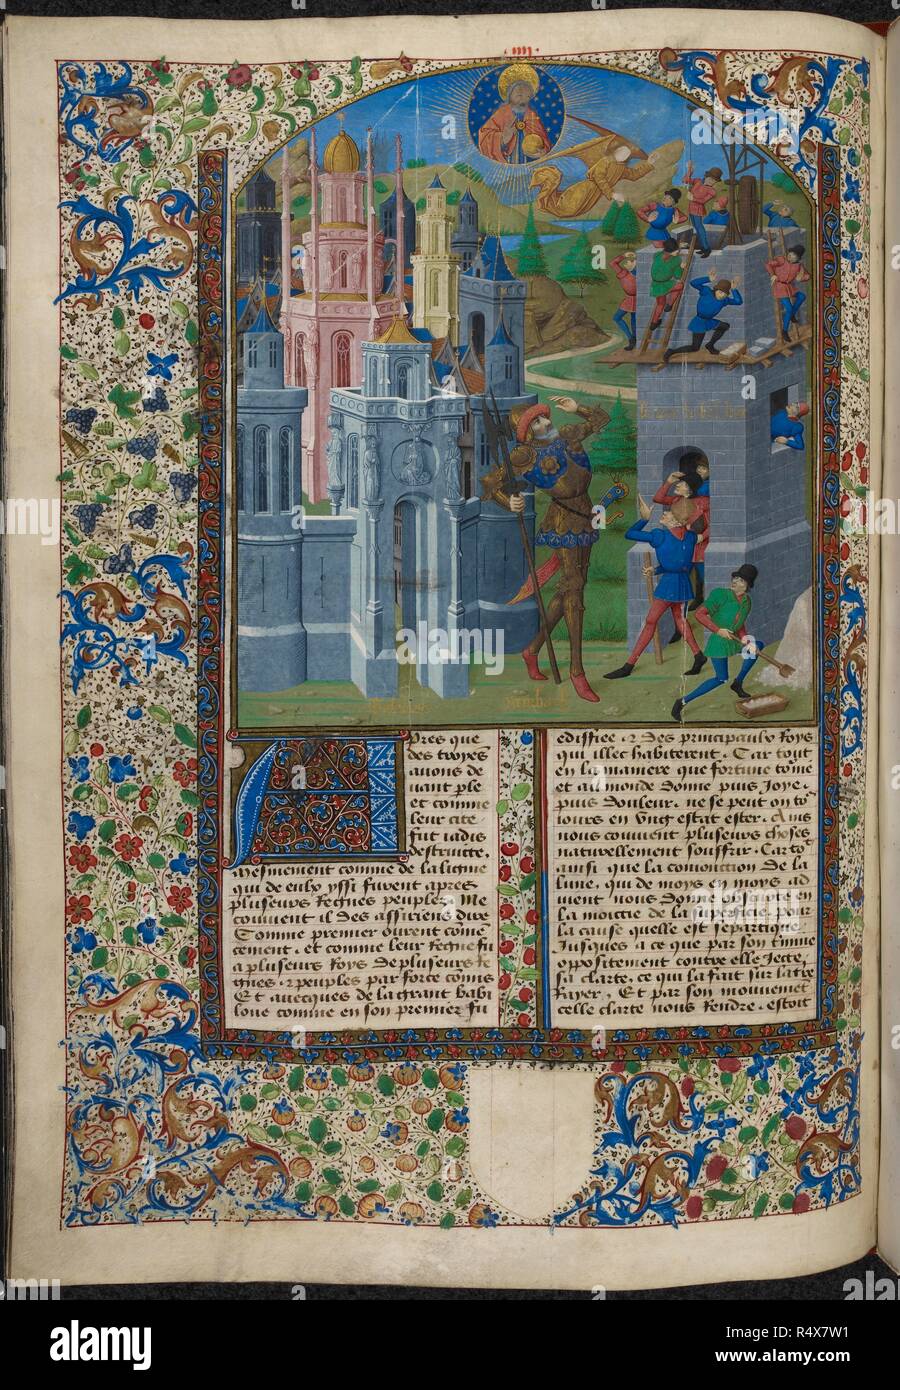 .iiij.
Pres que
des troyes
auons de
uant ple
et comme
leur cite
fut iadis
destruitte.
Mesmement comme de la ligne
qui de eulx yssi furent apres
pluseurs Regnes peuplez. Me
couuient il des assiriens dire
Comme premier orent come
cement. et comme leur Regne fu
a pluseurs Roys de pluseurs Re
gnes. et peuples par force comis
Et auecques de la grant babi
lone comme en son premier fu
ediffiee. et des principaulx Roys
qui illec habiterent. Car tout
en la maniere que fortune torne
et au monde donne puis Joye.
puis douleur. ne se peut on to
iours en vng estat ester. Ains
nous couuient pluseurs choses
naturellement souffrir. Car tot
ainsi que la comonction de la
lune, qui de moys en moys ad
uient nous donne obscurte en
la moittie de la superficie. pour
la cause quelle est separtique
Jusques a ce que par son
oppositement contre elle Jecte
sa clarte, ce qui la fait sur la tre
Rayer. Et par son mouuemet
celle clarte nous Rendre. estoit
alamy
alamy
Image ID: R4X7W1
www.alamy.com